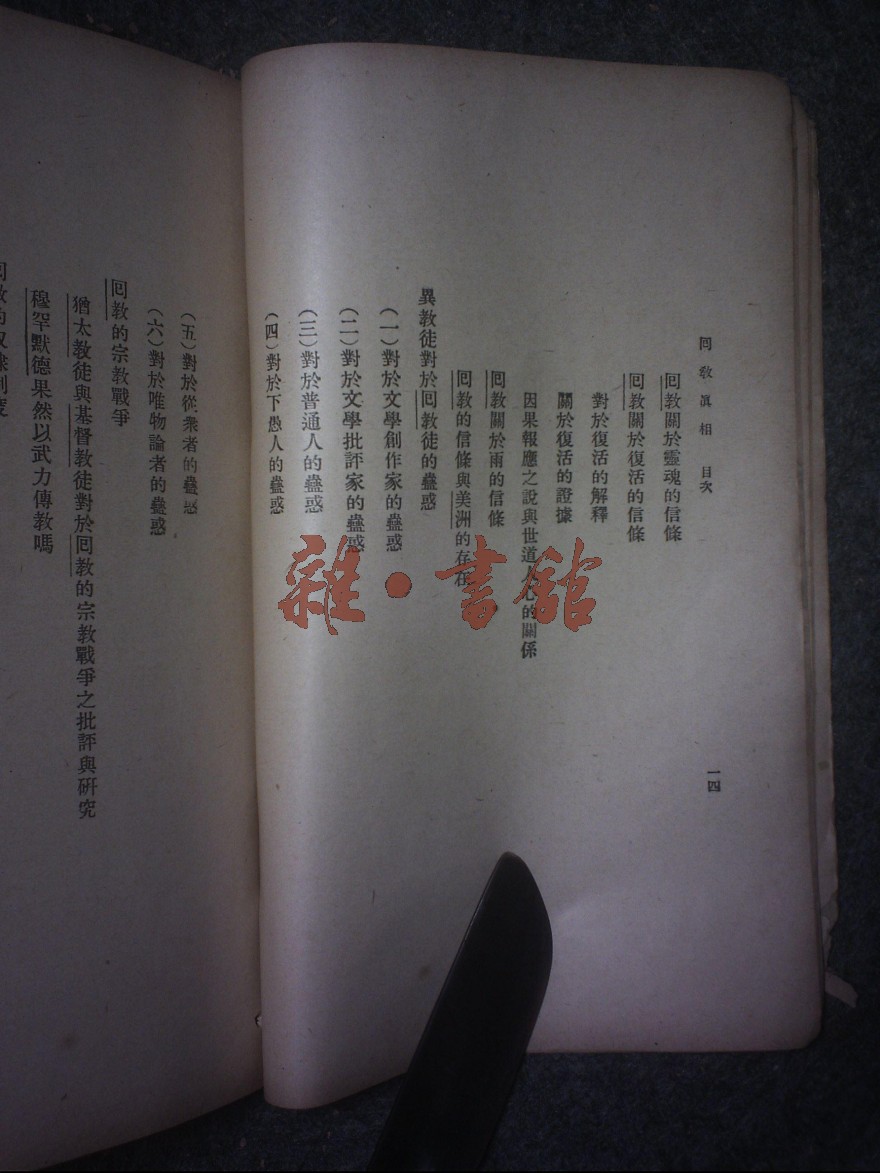 回教眞相 目次
一四
回教關於靈魂的信條
回教關於復活的信條
對於復活的解釋
關於復活的證據
因果報應之說與世道人心的關係
回教關於雨的信條
回教的信條與美洲的存在
異教徒對於回教徒的蠱惑
(一)對於文學創作家的蠱惑
(二)對於文學批評家的蠱惑
(三)對於普通人的蠱惑
(四)對於下愚人的蠱惑
(五)對於從衆者的蠱惑
(六)對於唯物論者的蠱惑
回教的宗教戰爭
猶太教徒與基督教徒對於回教的宗教戰爭之批評與硏究
穆罕默德果然以武力傳教嗎
雜·書館